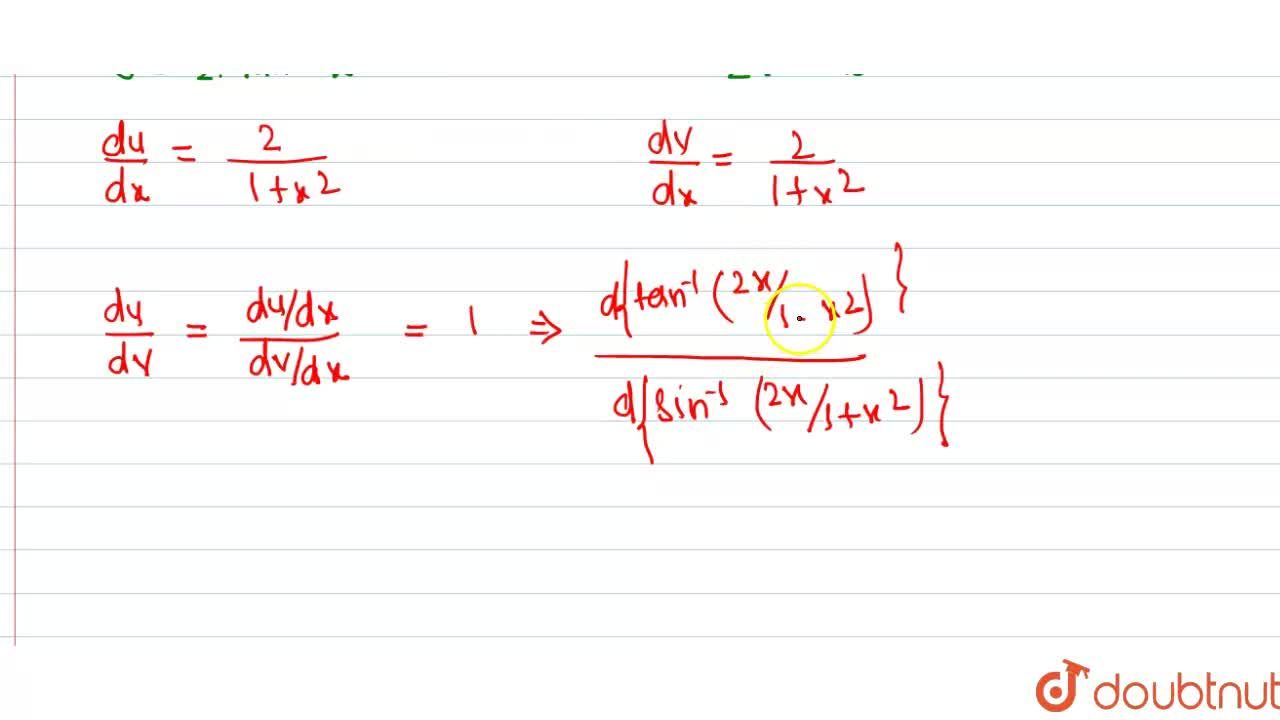 du/dx = 2/1+x² dv/dx = 2/1+x²
du/dv = du/dx/dv/dx = 1 ⇒ d{tan⁻¹(2x/1-x²)}/d{sin⁻¹(2x/1+x²)}
doubtnut